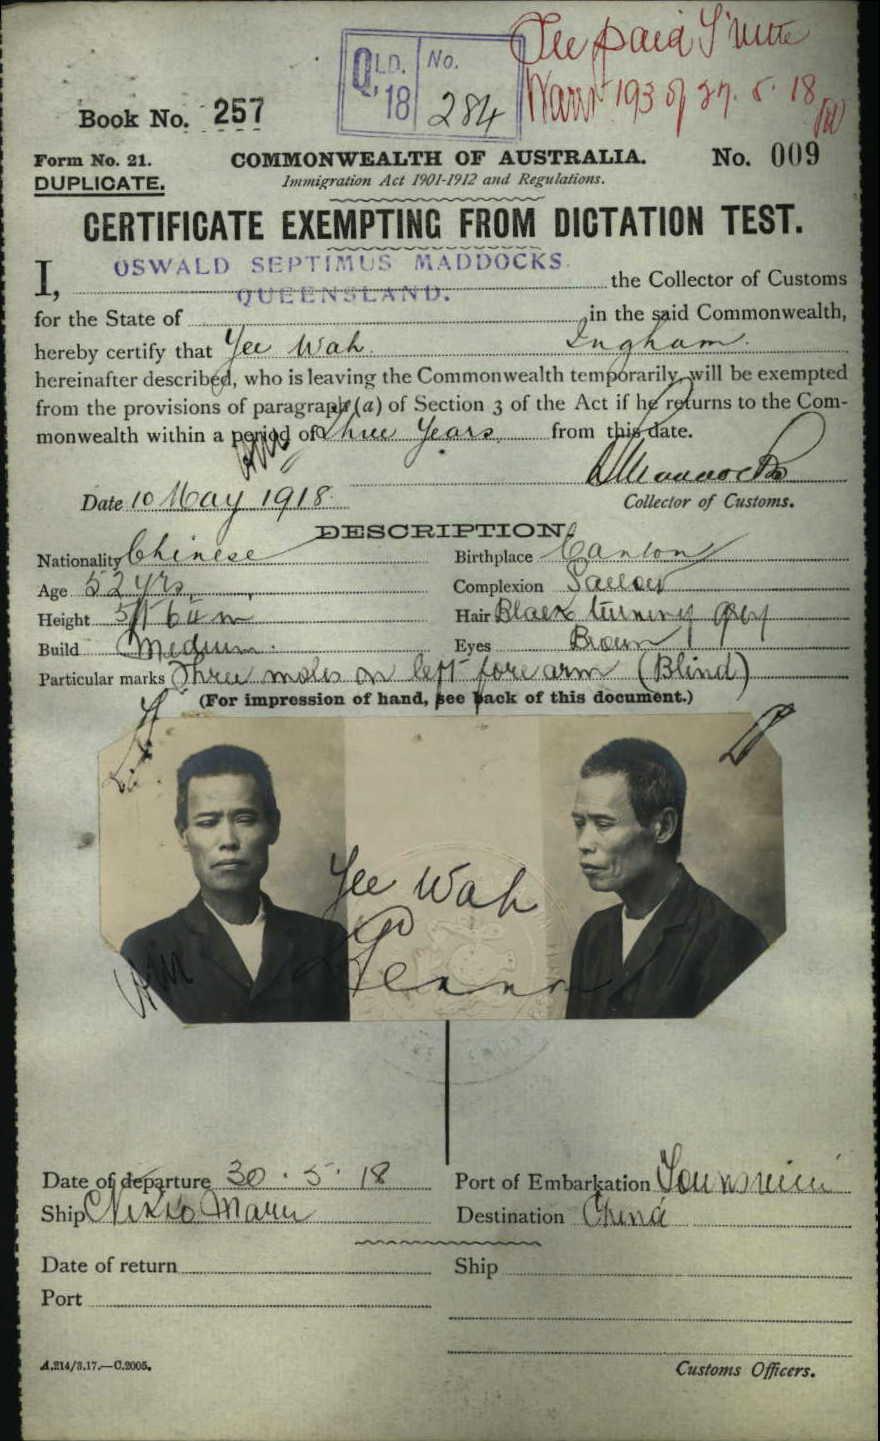 QLD. No.
'18 284
Fee paid T'ville
Warrt 193 of 27. 5. 18
Book No. 257
Form No. 21. COMMONWEALTH OF AUSTRALIA. No. 009
DUPLICATE. Immigration Act 1901-1912 and Regulations.
CERTIFICATE EXEMPTING FROM DICTATION TEST.
I, OSWALD SEPTIMUS MADDOCKS the Collector of Customs
for the State of QUEENSLAND. in the said Commonwealth,
hereby certify that Yee Wah. Ingham.
hereinafter described, who is leaving the Commonwealth temporarily, will be exempted
from the provisions of paragraph (a) of Section 3 of the Act if he returns to the Com-
monwealth within a period of Three Years from this date.
Date 10 May 1918. Collector of Customs.
DESCRIPTION.
Nationality Chinese Birthplace Canton
Age 52 yrs. Complexion Sallow
Height Hair Black turning grey
Build Medium. Eyes Brown
Particular marks Three moles on left forearm (Blind)
(For impression of hand, see back of this document.)
Yee Wah
Date of departure 30. 5. 18 Port of Embarkation Townsville
Ship Nikko Maru Destination China
Date of return Ship
Port
A.214/3.17.—C.2005. Customs Officers.